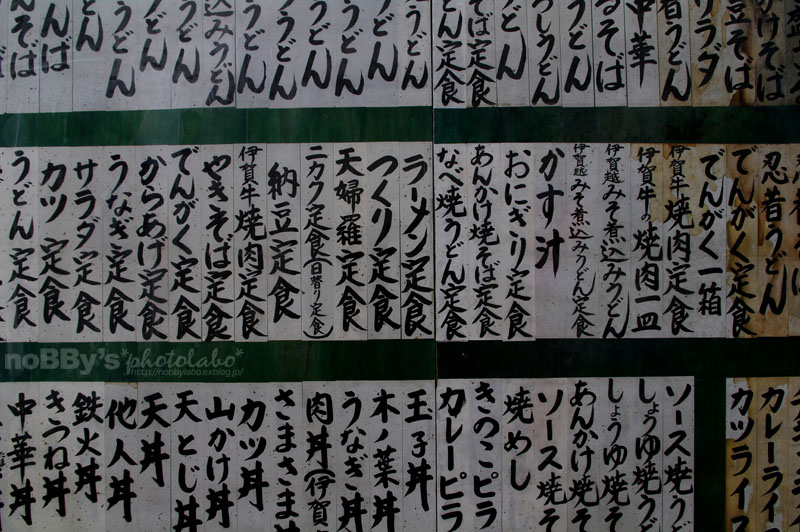 かけそば
豆そば
サラダ
着うどん
中華
るそば
うどん
しうどん
どん
そば定食
どん定食
うどん
どん
うどん
うどん
うどん
込みうどん
うどん
うどん
うどん
どん
んば
そば
忍者うどん
でんがく定食
でんがく一箱
伊賀牛焼肉定食
伊賀牛の焼肉一皿
伊賀越みそ煮込みうどん
伊賀越みそ煮込みうどん定食
かす汁
おにぎり定食
あんかけ焼そば定食
なべ焼うどん定食
ラーメン定食
つくり定食
天婦羅定食
ニカク定食(日替り定食)
納豆定食
伊賀牛焼肉定食
やきそば定食
でんがく定食
からあげ定食
うなぎ定食
サラダ定食
カツ定食
うどん定食
noBBy's *photolabo*
http://nobbylabo.exblog.jp/
カレーライ
カツライス
ソース焼う
しょうゆ焼う
しょうゆ焼そ
あんかけ焼そ
ソース焼そ
焼めし
きのこピラ
カレーピラ
玉子丼
木ノ葉丼
うなぎ丼
肉丼(伊賀
さまさま
カツ丼
山かけ丼
天とじ丼
天丼
他人丼
鉄火丼
きつね丼
中華丼